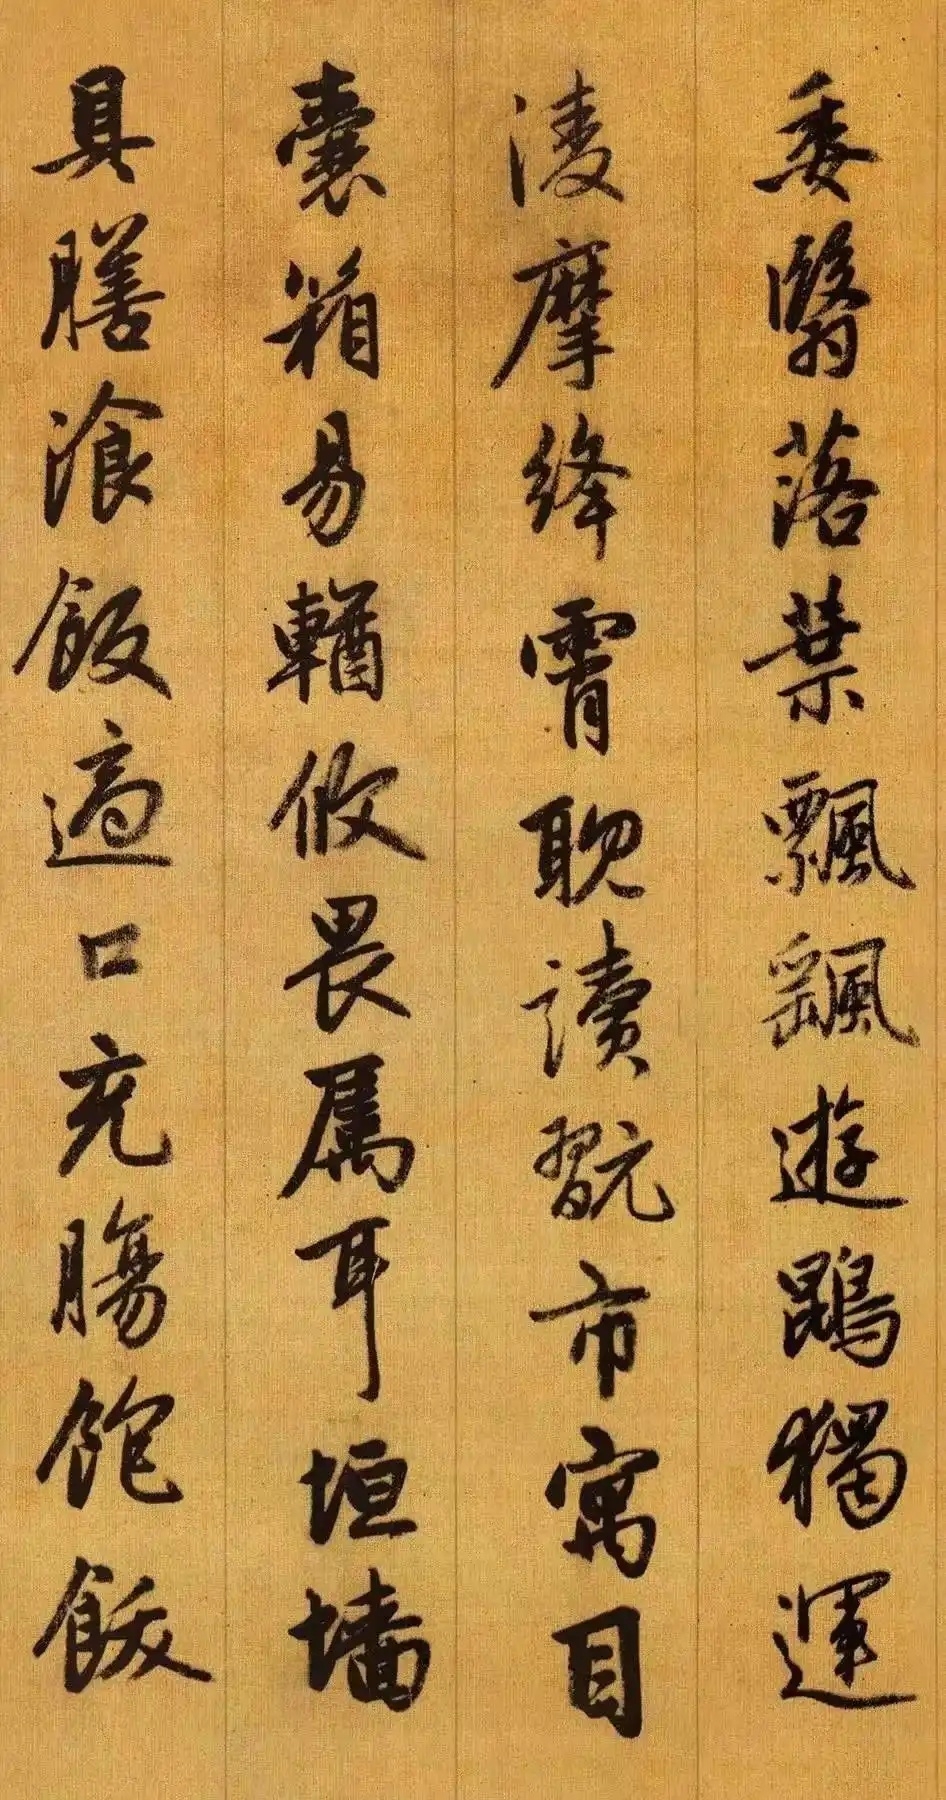 委翳落葉飄颻遊鵾獨運
凌摩絳霄耽讀翫市寓目
囊箱易輶攸畏属耳垣墙
具膳湌飯適口充膓飽飫